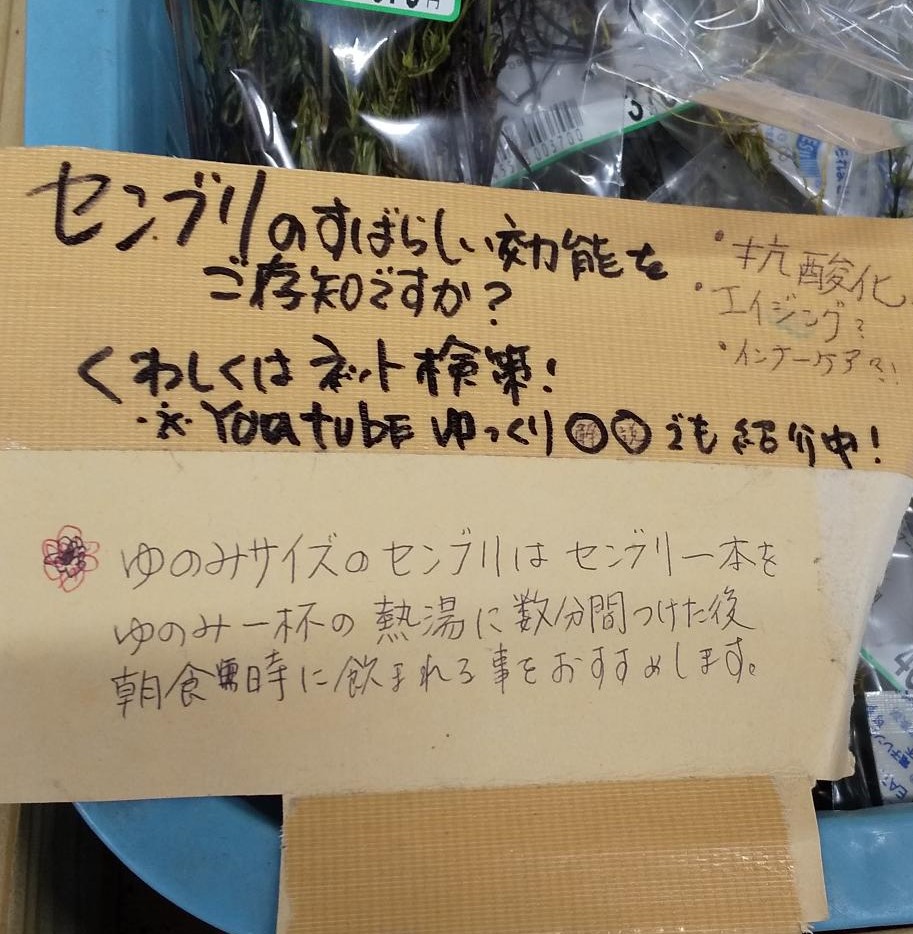 センブリのすばらしい効能を
ご存知ですか？
・抗酸化
・エイジング？
・インナーケア？！
くわしくはネット検索！
※YouTubE ゆっくり解説でも紹介中！
ゆのみサイズのセンブリは センブリ一本を
ゆのみ一杯の熱湯に数分間つけた後
朝食時に飲まれる事をおすすめします。